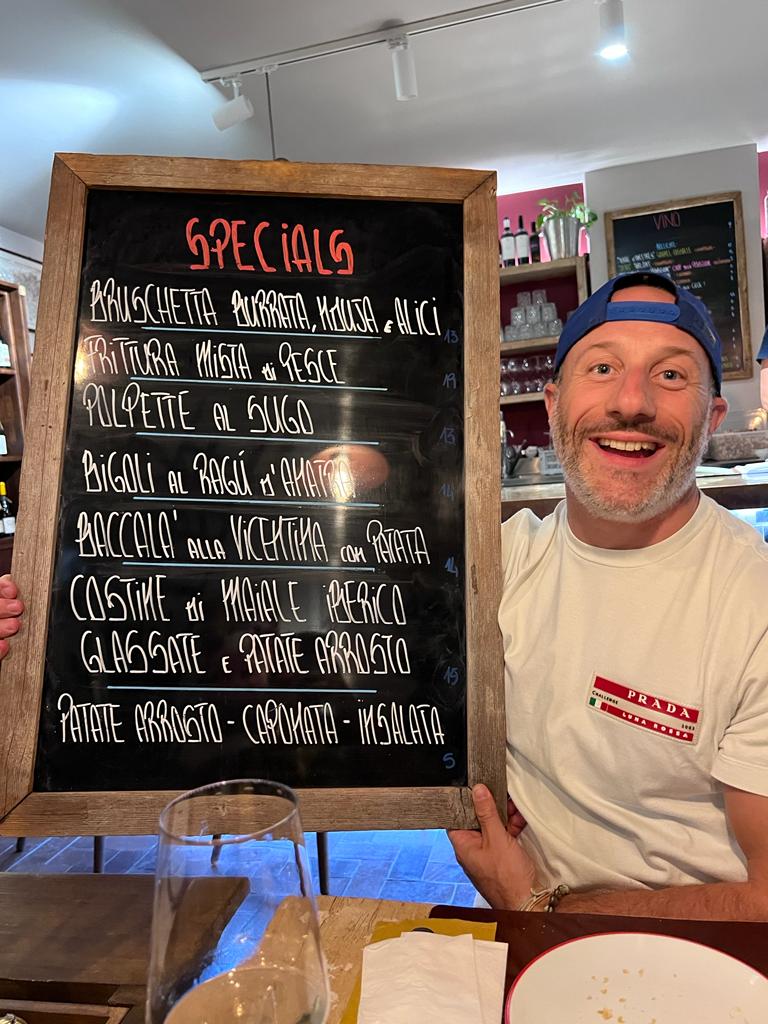 SPECIALS
BRUSCHETTA BURRATA, NDUJA E ALICI 13
FRITTURA MISTA di PESCE 19
POLPETTE AL SUGO 13
BIGOLI AL RAGÚ D'ANATRA 14
BACCALA' ALLA VICENTINA CON PATATA 14
COSTINE di MAIALE IBERICO
GLASSATE E PATATE ARROSTO 15
PATATE ARROSTO - CAPONATA - iNSALATA 5
VINO
PRADA
CHALLENGE
LUNA ROSSA